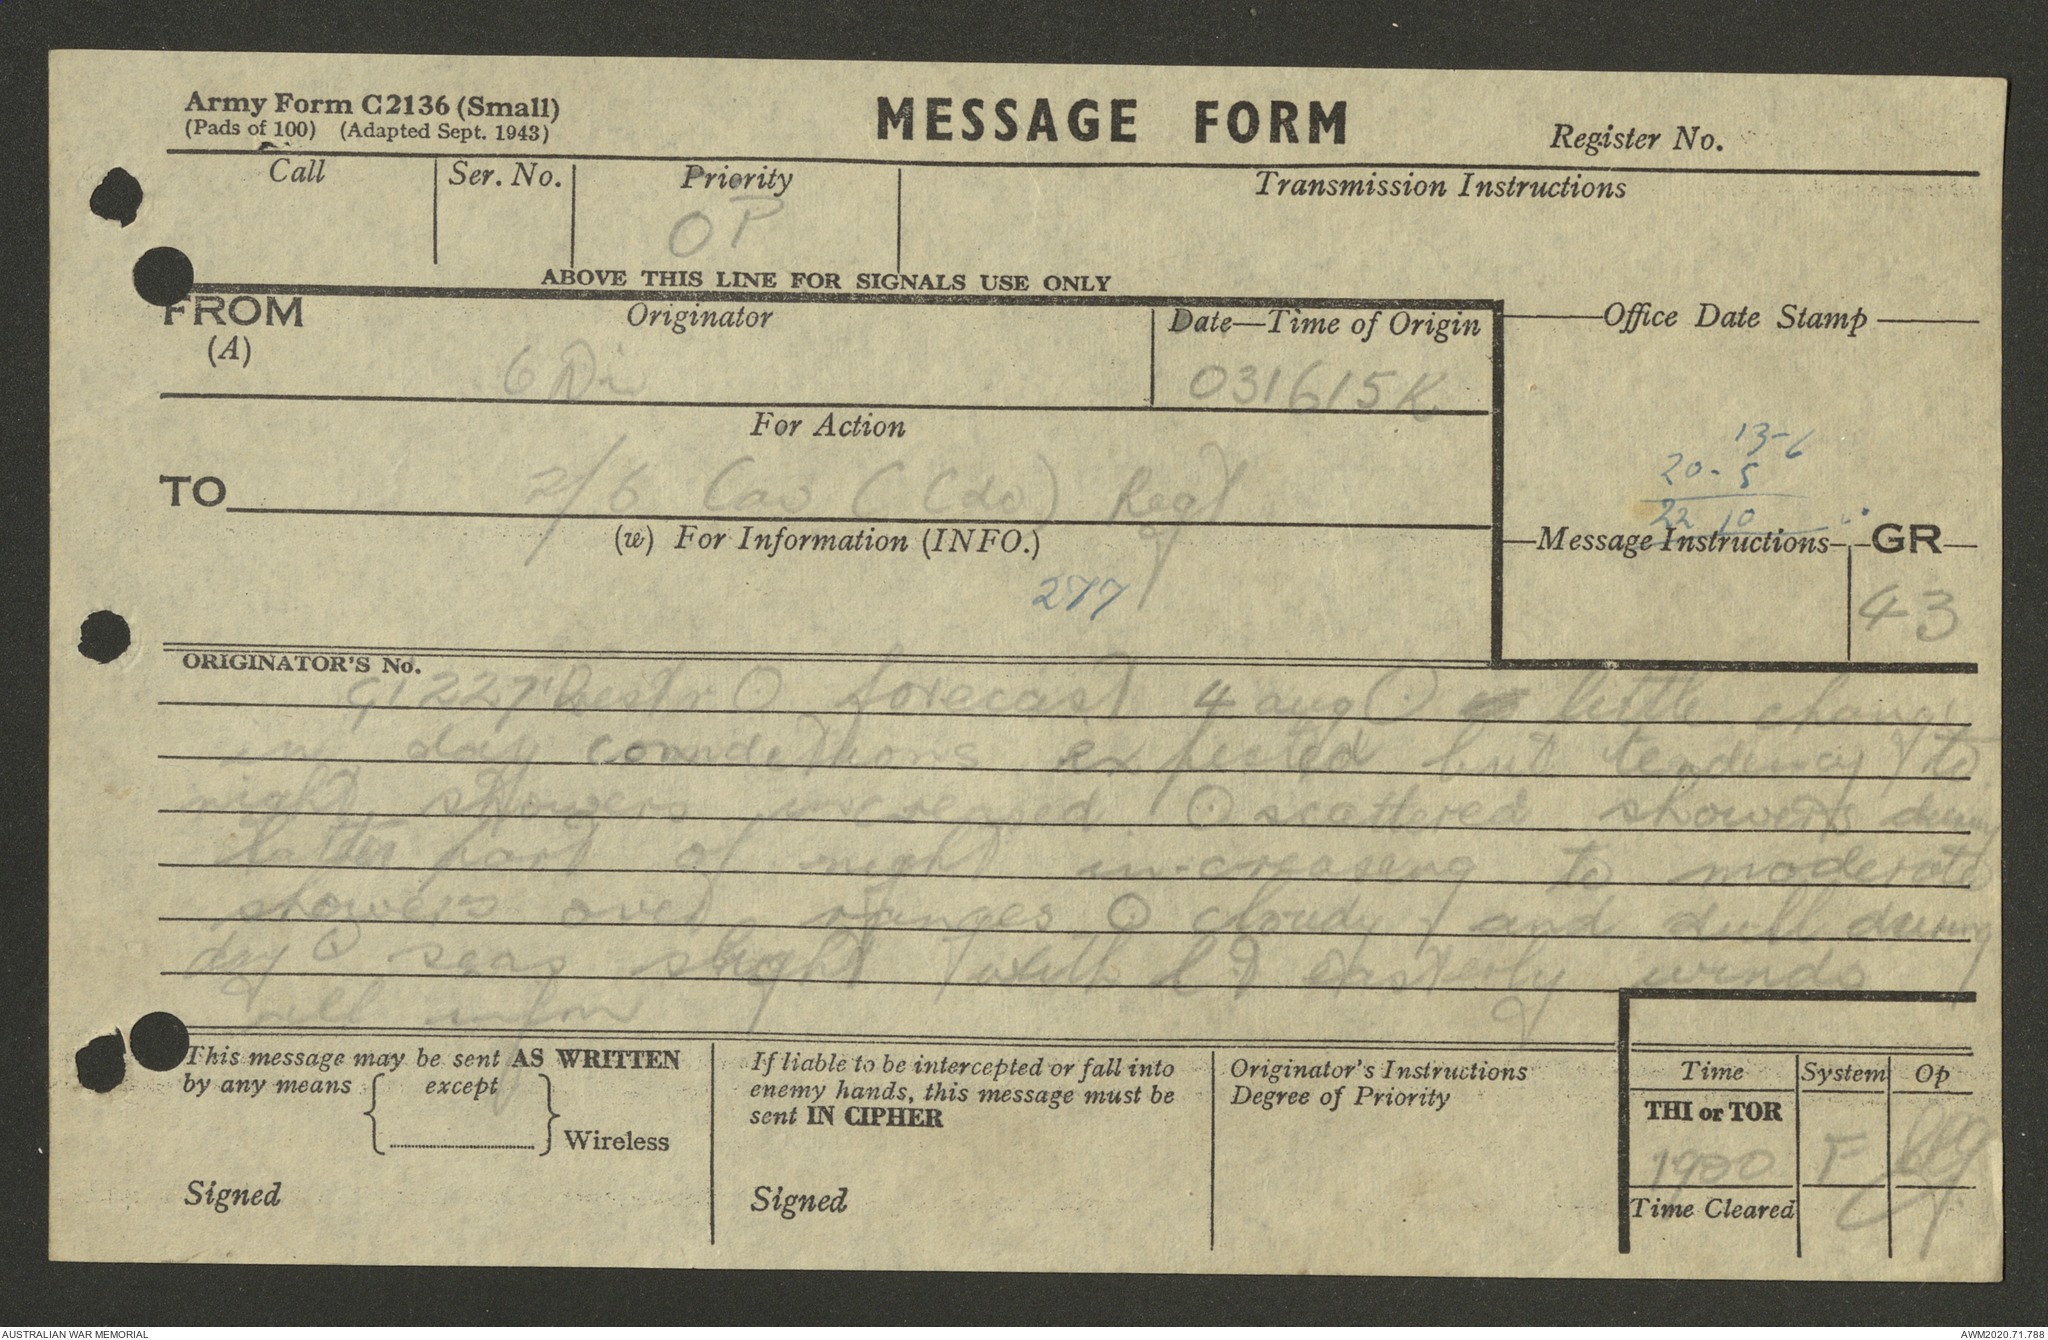 Army Form C2136 (Small)
(Pads of 100) (Adapted Sept. 1943)
MESSAGE FORM
Register No.
Call
Ser. No.
Priority
Transmission Instructions
OP
ABOVE THIS LINE FOR SIGNALS USE ONLY
FROM
(A)
Originator
Date—Time of Origin
Office Date Stamp
6 Div
031615K
For Action
13-6
20-5
22 10
TO
2/6 Cav (Cdo) Regt
(w) For Information (INFO.)
Message Instructions
GR
277
43
ORIGINATOR'S No.
G1227 Restr O forecast 4 aug O little change
in day conndethons expected but tendency to
night showers increased O scattered showers during
latter part of night increasing to moderate
showers over ranges O cloudy and dull during
day O seas slight with lt easterly winds
all infm
This message may be sent AS WRITTEN
by any means except
Wireless
Signed
If liable to be intercepted or fall into
enemy hands, this message must be
sent IN CIPHER
Signed
Originator's Instructions
Degree of Priority
Time
System
Op
THI or TOR
1920 F
Time Cleared
AUSTRALIAN WAR MEMORIAL
AWM2020.71.788